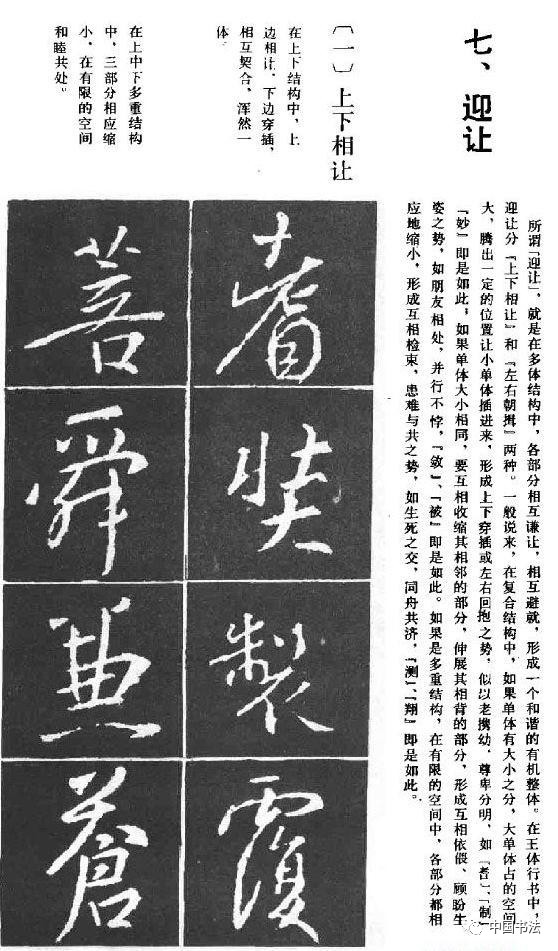 七、迎让
所谓『迎让』，就是在多体结构中，各部分相互谦让，相互避就，形成一个和谐的有机整体。在王体行书中，
迎让分『上下相让』和『左右朝揖』两种。一般说来，在复合结构中，如果单体有大小之分，大单体占的空间
大，腾出一定的位置让小单体插进来，形成上下穿插或左右回抱之势，似以老携幼，尊卑分明，如『耆』、『制』
『妙』即是如此；如果单体大小相同，要互相收缩其相邻的部分，伸展其相背的部分，形成互相依偎、顾盼生
姿之势，如朋友相处，并行不悖，『敛』、『被』即是如此。如果是多重结构，在有限的空间中，各部分都相
应地缩小，形成互相检束，患难与共之势，如生死之交，同舟共济，『测』、『翔』即是如此。
〔一〕上下相让
在上下结构中，上
边相让，下边穿插，
相互契合，浑然一
体。
在上中下多重结构
中，三部分相应缩
小，在有限的空间
和睦共处。
耆
奘
製
覆
菩
舜
典
蒼
中国书法